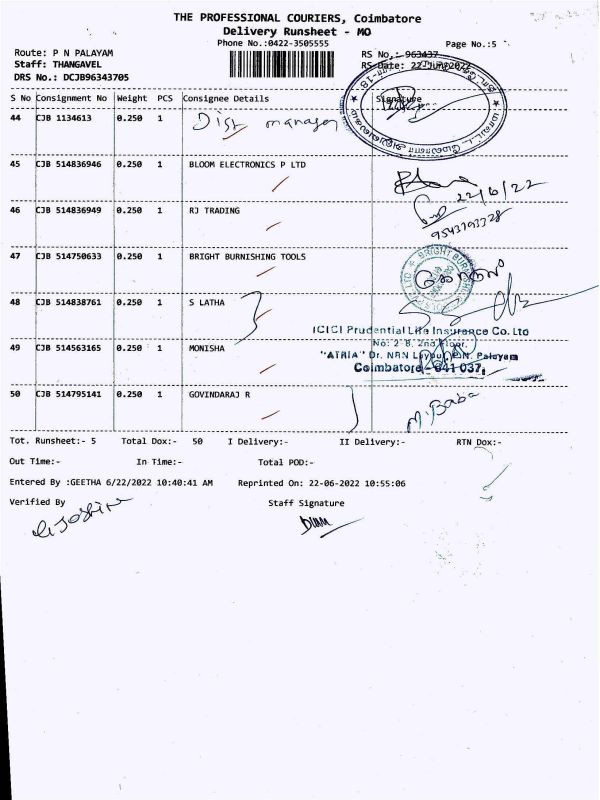 THE PROFESSIONAL COURIERS, Coimbatore
Delivery Runsheet - MO
Phone No.:0422-3505555
Page No.:5
Route: P N PALAYAM
RS No.: 963437
Staff: THANGAVEL
RS Date: 22-Jun-2022
DRS No.: DCJB96343705
S No Consignment No Weight PCS Consignee Details Signature
44 CJB 1134613 0.250 1 Dist manager
45 CJB 514836946 0.250 1 BLOOM ELECTRONICS P LTD
22/6/22
46 CJB 514836949 0.250 1 RJ TRADING
9543793328
47 CJB 514750633 0.250 1 BRIGHT BURNISHING TOOLS
BRIGHT BURNISHING
48 CJB 514838761 0.250 1 S LATHA
ICICI Prudential Life Insurance Co. Ltd
No: 2-8, 2nd Floor,
49 CJB 514563165 0.250 1 MONISHA
"ATRIA" Dr. NRN Layout, P.N. Palayam
Coimbatore - 641 037.
50 CJB 514795141 0.250 1 GOVINDARAJ R
M. Baba
Tot. Runsheet:- 5 Total Dox:- 50 I Delivery:- II Delivery:- RTN Dox:-
Out Time:- In Time:- Total POD:-
Entered By :GEETHA 6/22/2022 10:40:41 AM Reprinted On: 22-06-2022 10:55:06
Verified By Staff Signature